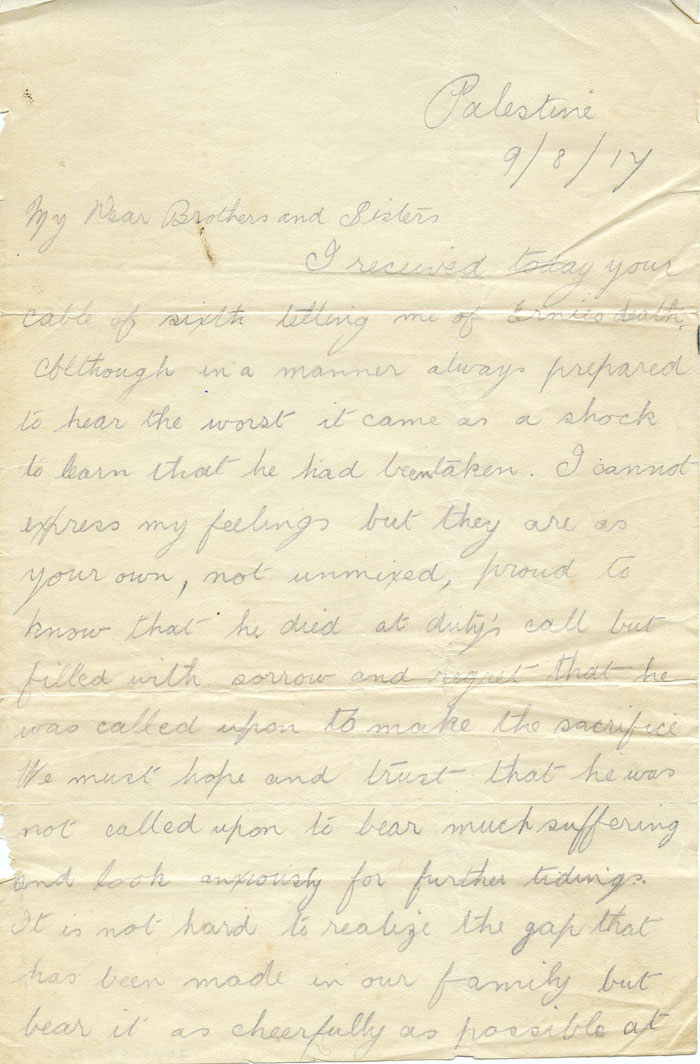 Palestine
9/8/17
My Dear Brothers and Sisters
I received today your
cable of sixth telling me of Ernies death.
Although in a manner always prepared
to hear the worst it came as a shock
to learn that he had been taken. I cannot
express my feelings but they are as
your own, not unmixed, proud to
know that he died at duty's call but
filled with sorrow and regret that he
was called upon to make the sacrifice
We must hope and trust that he was
not called upon to bear much suffering
and look anxiously for further tidings.
It is not hard to realize the gap that
has been made in our family but
bear it as cheerfully as possible at